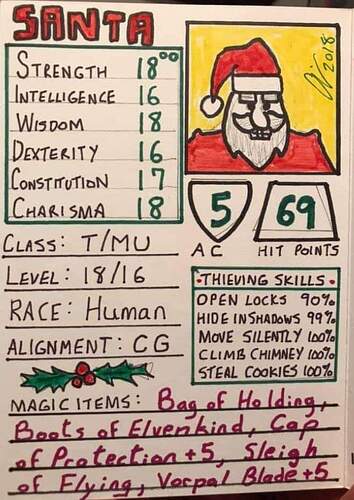 SANTA
STRENGTH 18 00
INTELLIGENCE 16
WISDOM 18
DEXTERITY 16
CONSTITUTION 17
CHARISMA 18
2018
5
AC
69
HIT POINTS
CLASS: T/MU
LEVEL: 18/16
RACE: Human
ALIGNMENT: CG
• THIEVING SKILLS •
OPEN LOCKS 90%
HIDE IN SHADOWS 99%
MOVE SILENTLY 100%
CLIMB CHIMNEY 100%
STEAL COOKIES 100%
MAGIC ITEMS: Bag of Holding,
Boots of Elvenkind, Cap
of Protection +5, Sleigh
of Flying, Vorpal Blade +5